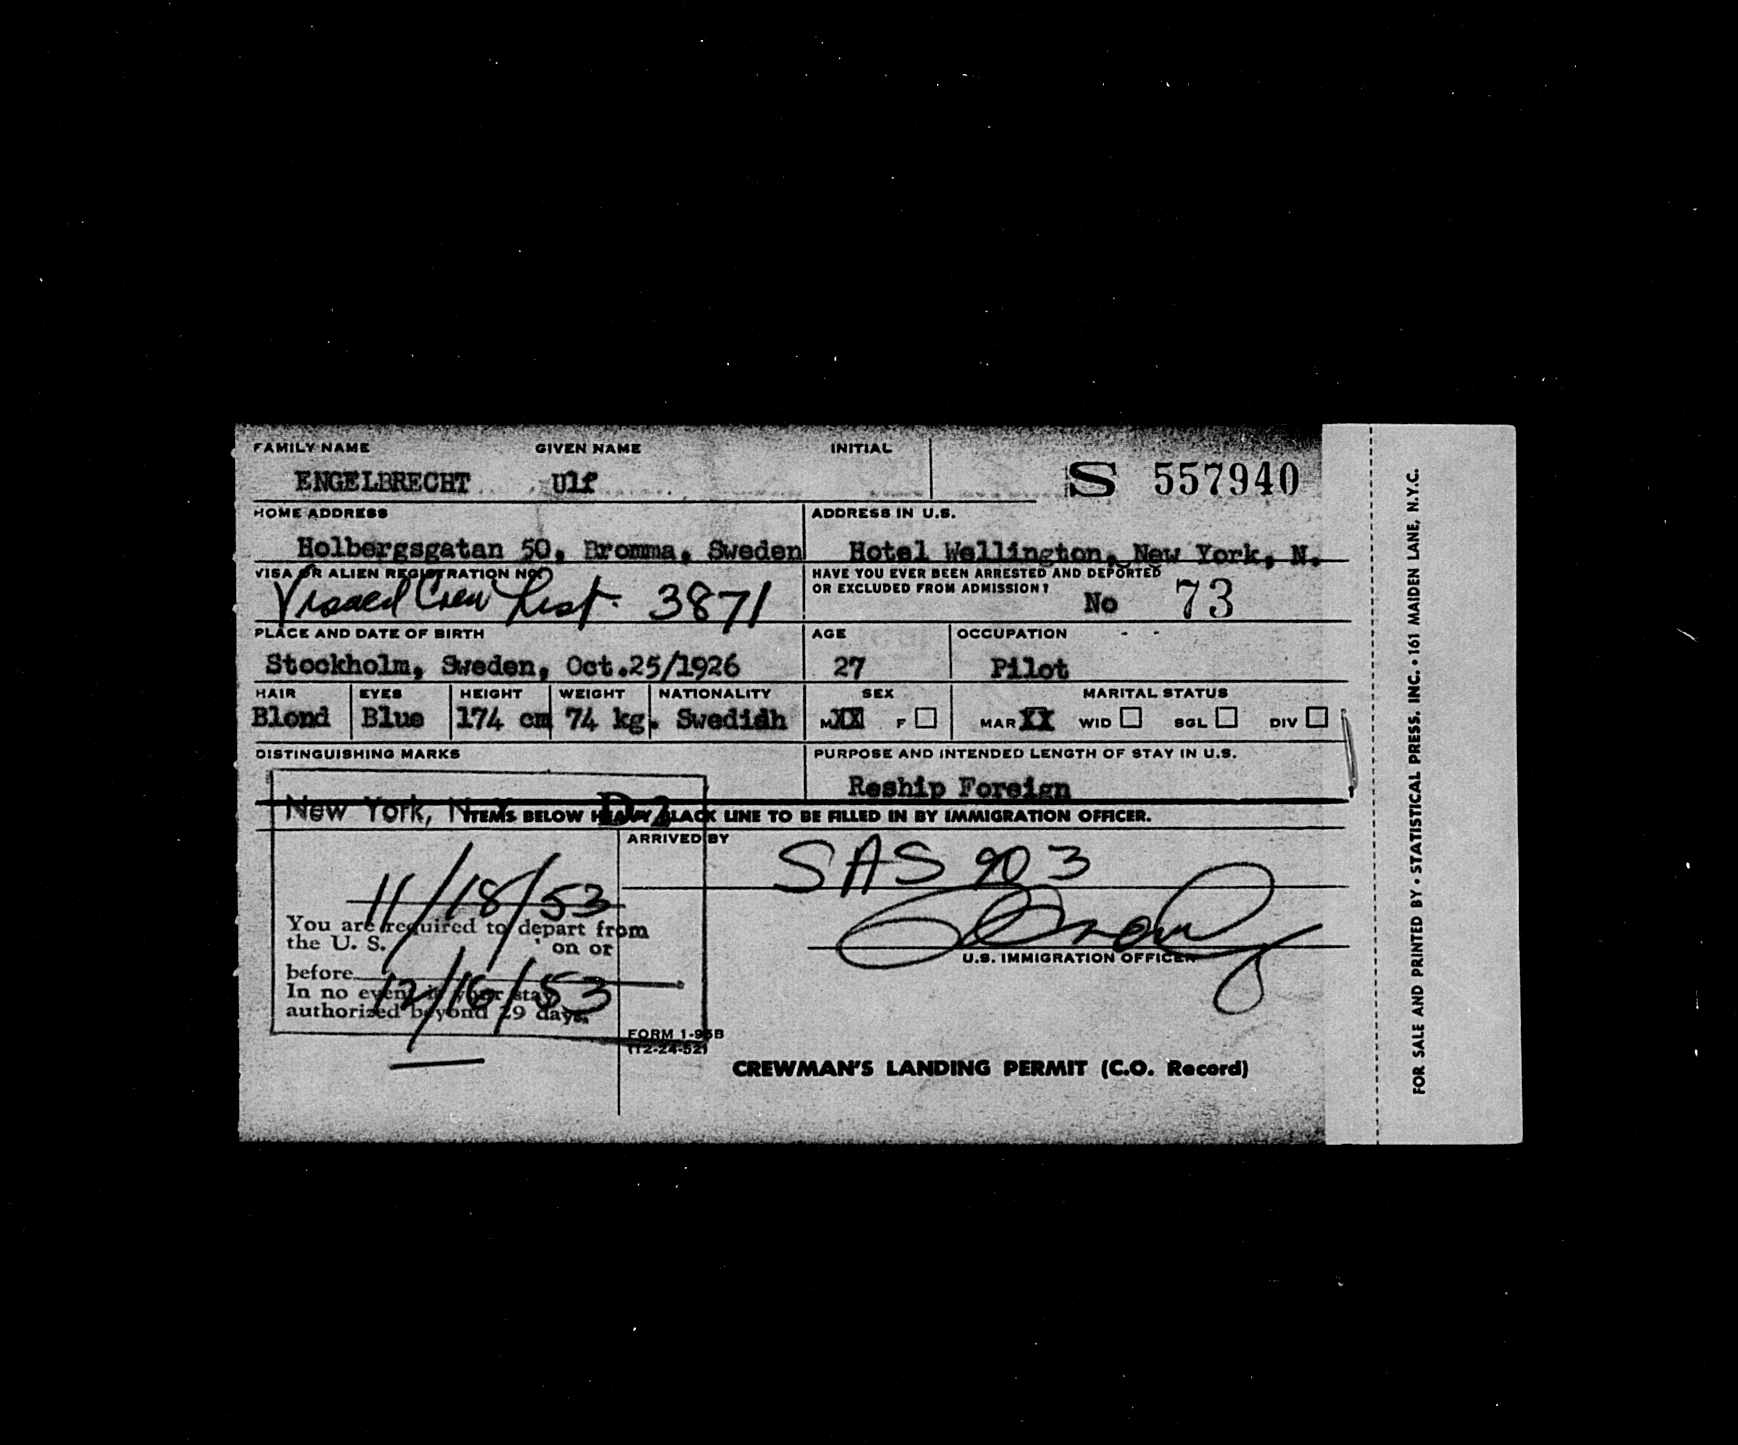 FAMILY NAME GIVEN NAME INITIAL
ENGELBRECHT Ulf S 557940
HOME ADDRESS ADDRESS IN U.S.
Holbergsgatan 50, Bromma, Sweden Hotel Wellington, New York, N.
VISA OR ALIEN REGISTRATION NO. HAVE YOU EVER BEEN ARRESTED AND DEPORTED
OR EXCLUDED FROM ADMISSION?
Visaed Crew List. 3871 No 73
PLACE AND DATE OF BIRTH AGE OCCUPATION
Stockholm, Sweden, Oct.25/1926 27 Pilot
HAIR EYES HEIGHT WEIGHT NATIONALITY SEX MARITAL STATUS
Blond Blue 174 cm 74 kg. Swedish M XX F MAR XX WID SGL DIV
DISTINGUISHING MARKS PURPOSE AND INTENDED LENGTH OF STAY IN U.S.
Reship Foreign
New York, N.Y.
ITEMS BELOW HEAVY BLACK LINE TO BE FILLED IN BY IMMIGRATION OFFICER.
ARRIVED BY
SAS 903
11/18/53
You are required to depart from
the U. S. on or
before 12/16/53
In no event is your stay
authorized beyond 29 days.
U.S. IMMIGRATION OFFICER
FORM 1-95B
(12-24-52)
CREWMAN'S LANDING PERMIT (C.O. Record)
FOR SALE AND PRINTED BY • STATISTICAL PRESS. INC. • 161 MAIDEN LANE, N.Y.C.